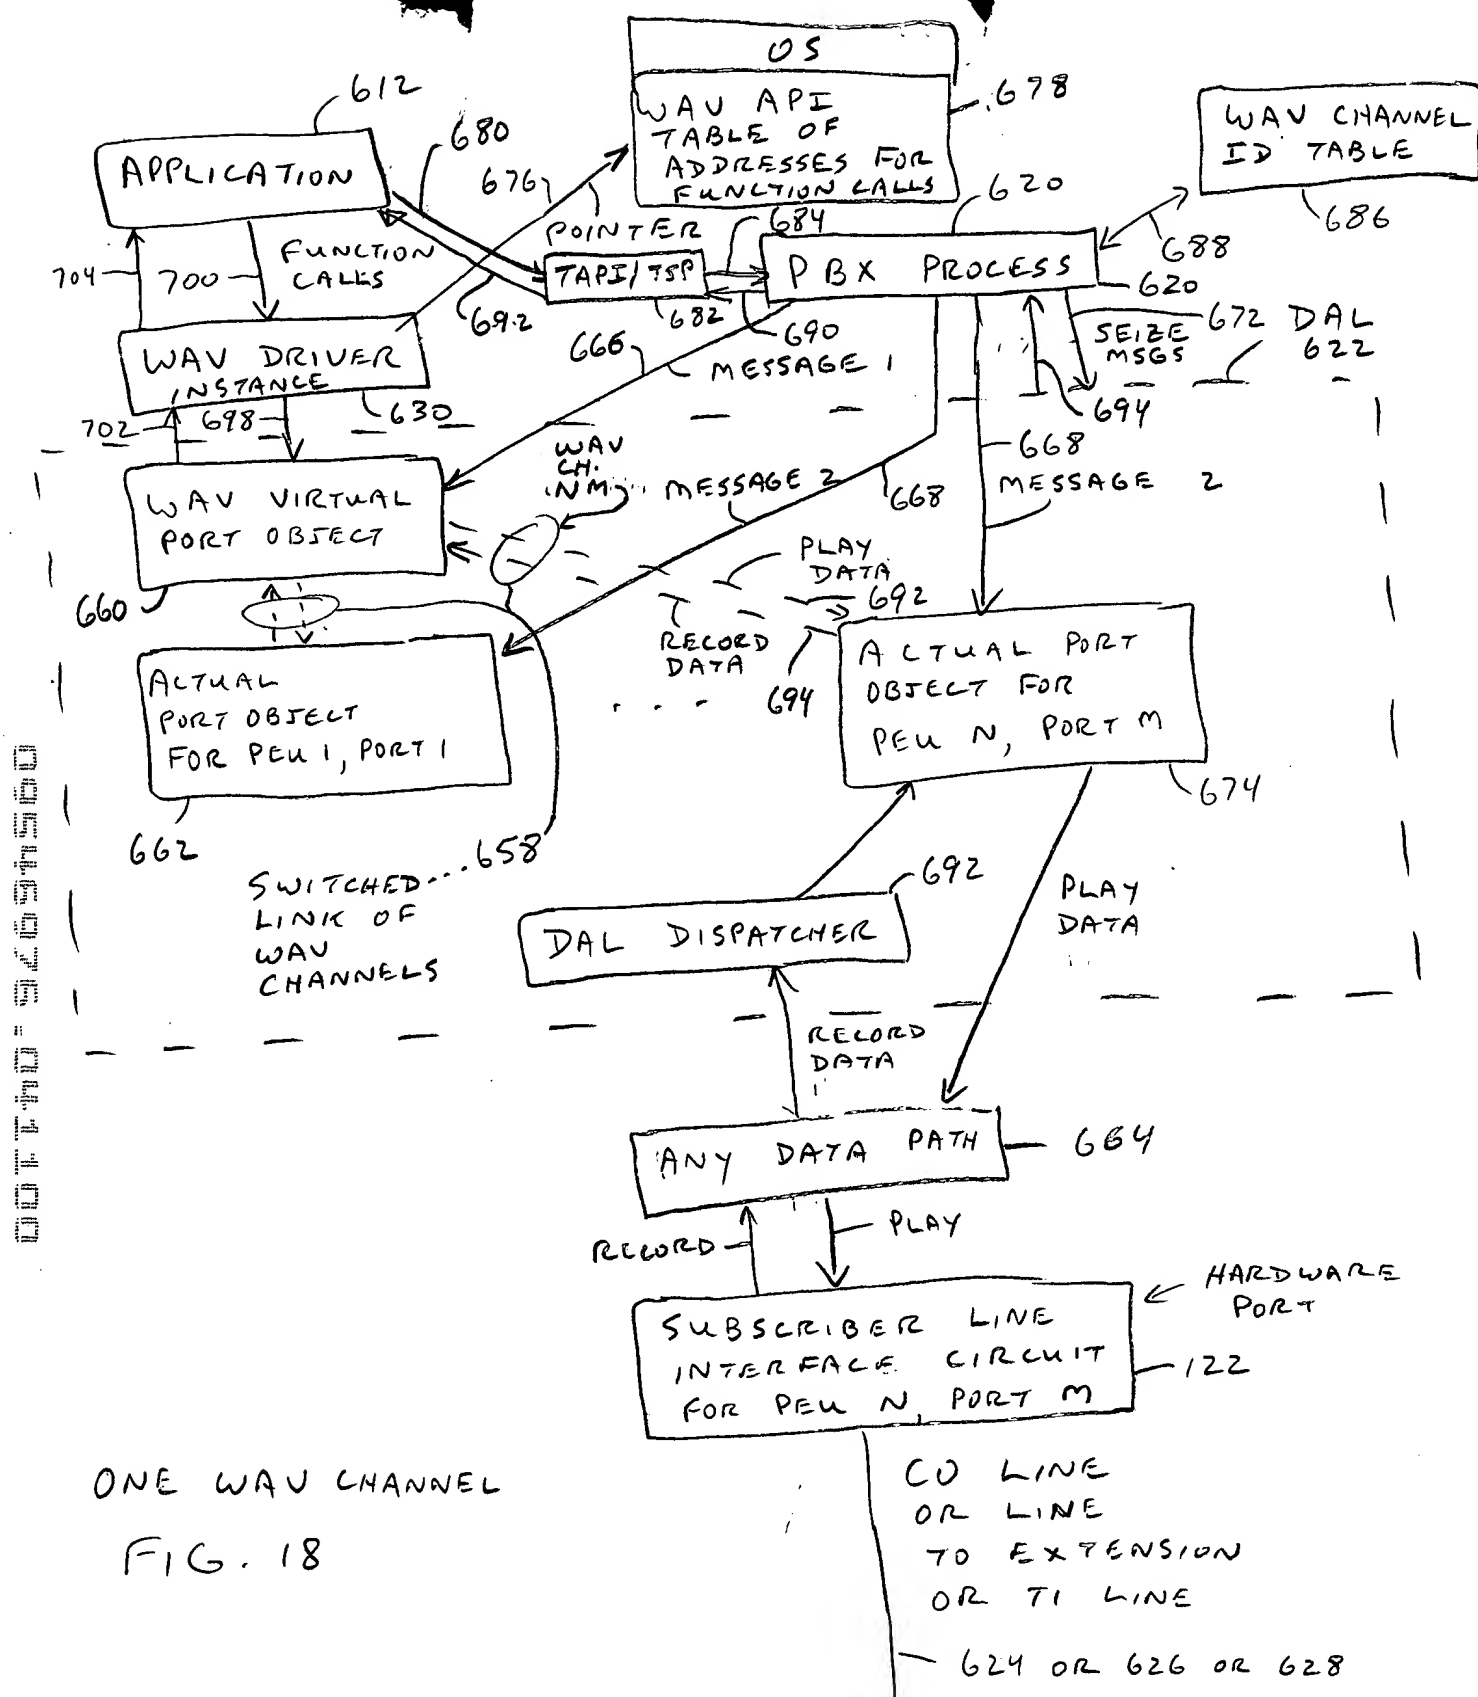 OS
WAV API
TABLE OF
ADDRESSES FOR
FUNCTION CALLS
678
WAV CHANNEL
ID TABLE
686
688
612
APPLICATION
680
676
POINTER
684
620
PBX PROCESS
620
TAPI/TSP
682
690
692
704
700
FUNCTION
CALLS
WAV DRIVER
INSTANCE
630
702
698
666
MESSAGE 1
SEIZE
MSGS
672
DAL
622
694
668
MESSAGE 2
WAV
CH.
N M
MESSAGE 2
668
WAV VIRTUAL
PORT OBJECT
660
PLAY
DATA
692
RECORD
DATA
694
ACTUAL
PORT OBJECT
FOR PEU 1, PORT 1
662
. . .
ACTUAL PORT
OBJECT FOR
PEU N, PORT M
674
SWITCHED...658
LINK OF
WAV
CHANNELS
692
DAL DISPATCHER
PLAY
DATA
RECORD
DATA
ANY DATA PATH
664
RECORD
PLAY
HARDWARE
PORT
SUBSCRIBER LINE
INTERFACE CIRCUIT
FOR PEU N, PORT M
122
CO LINE
OR LINE
TO EXTENSION
OR T1 LINE
624 OR 626 OR 628
ONE WAV CHANNEL
FIG. 18
09545975.041100